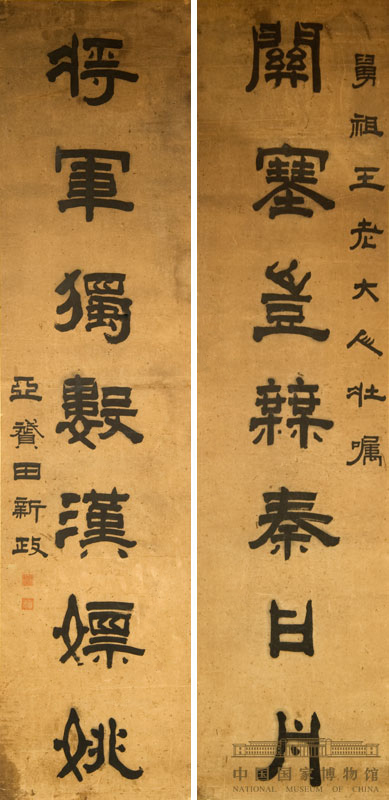 舅祖王老大人壯囑
關塞豈無秦日月
將軍獨數漢嫖姚
亞田新政
中国国家博物馆
NATIONAL MUSEUM OF CHINA